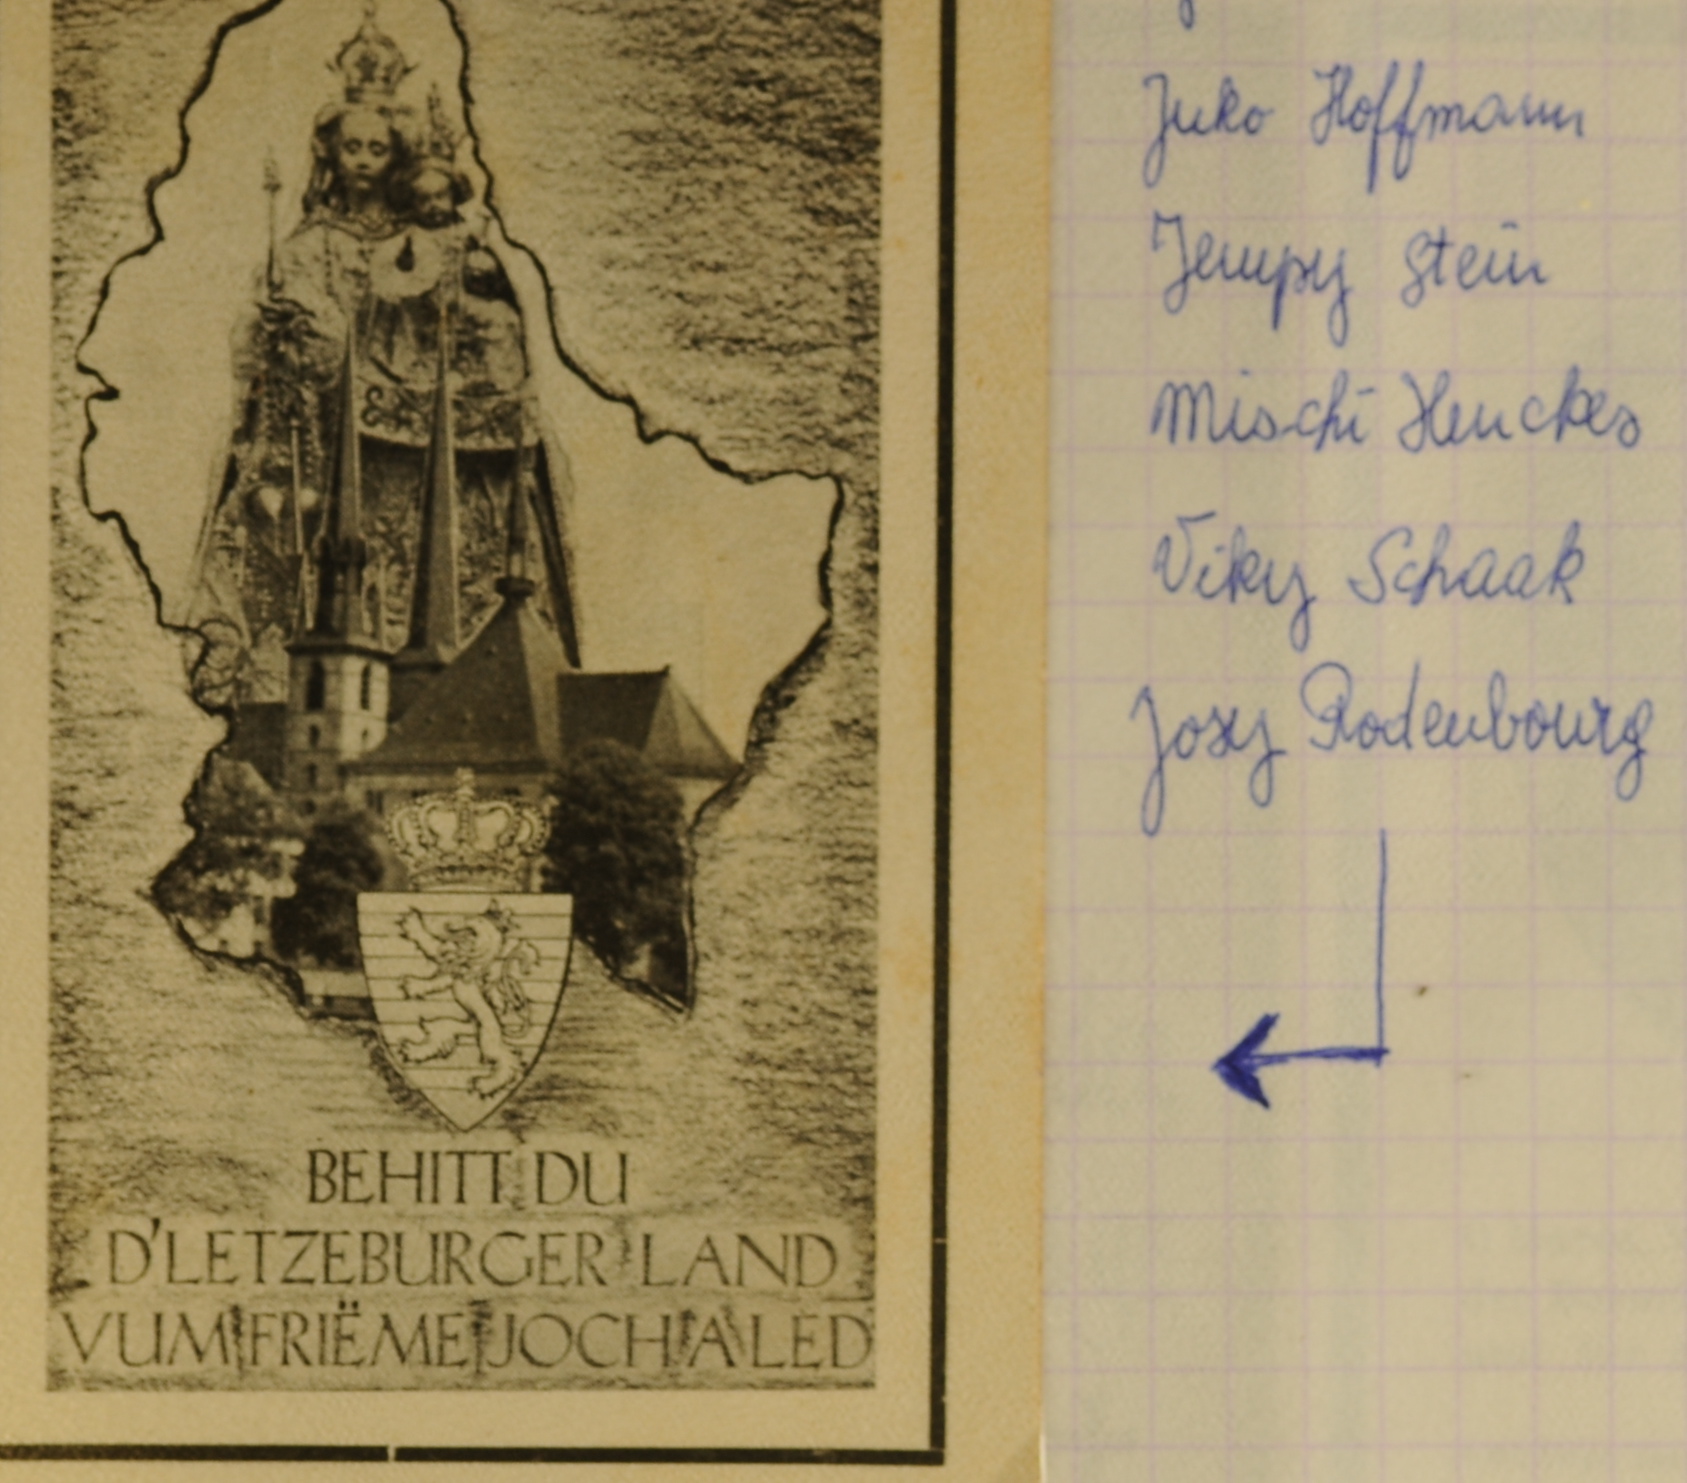 BEHITT DU
D'LETZEBURGER LAND
VUM FRIËME JOCH A LED
Juko Hoffmann
Jempy Stein
Mischi Henckes
Viky Schaak
Josy Rodenbourg